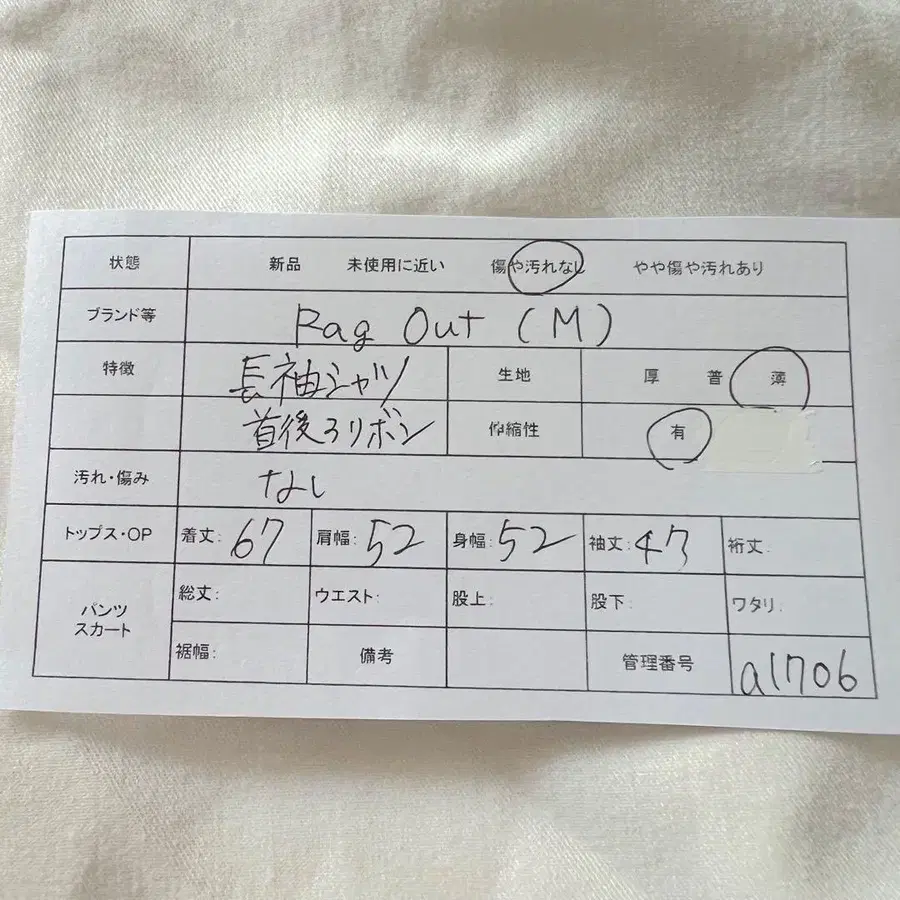 状態 新品 未使用に近い 傷や汚れなし やや傷や汚れあり
ブランド等 Rag Out (M)
特徴 長袖シャツ 生地 厚 普 薄
首後ろリボン 伸縮性 有
汚れ・傷み なし
トップス・OP 着丈: 67 肩幅: 52 身幅: 52 袖丈: 47 裄丈.
パンツ スカート 総丈: ウエスト: 股上: 股下: ワタリ:
裾幅: 備考 管理番号 a1706